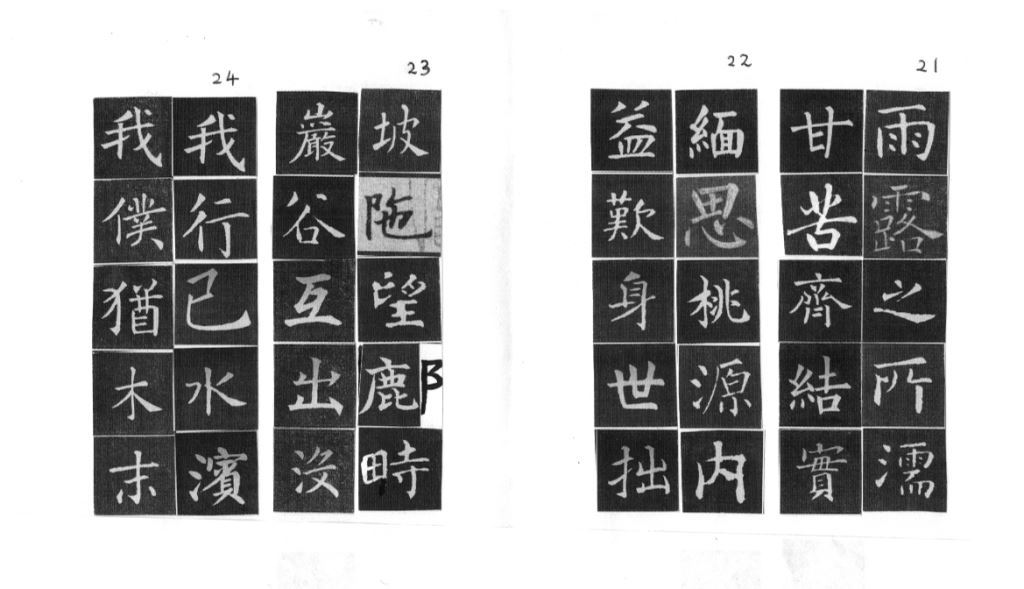 21
雨露之所濡
甘苦齊結實
22
緬思桃源内
益歎身世拙
23
坡陁望鄜畤
巖谷互出没
24
我行已水濱
我僕猶木末